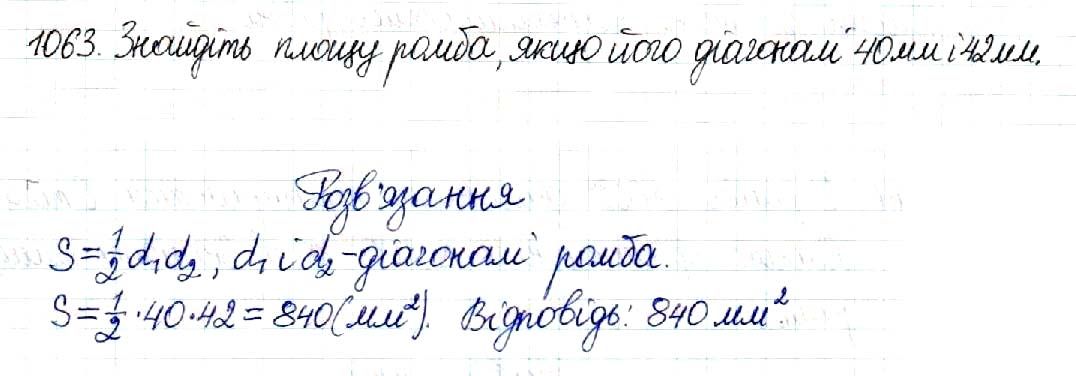 1063. Знайдіть площу ромба, якщо його діагоналі 40мм і 42мм.
Розв'язання
S=1/2 d₁d₂, d₁ і d₂-діагоналі ромба.
S=1/2·40·42=840(мм²). Відповідь: 840мм².